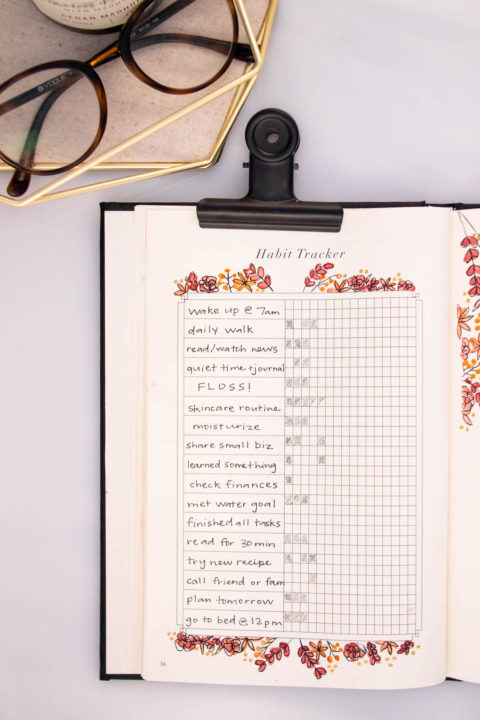 CEDAR MAGNOLIA
VOGUE
Habit Tracker
wake up @ 7am
daily walk
read/watch news
quiet time + journal
FLOSS!
skincare routine
moisturize
share small biz
learned something
check finances
met water goal
finished all tasks
read for 30 min
try new recipe
call friend or fam
plan tomorrow
go to bed @ 12pm